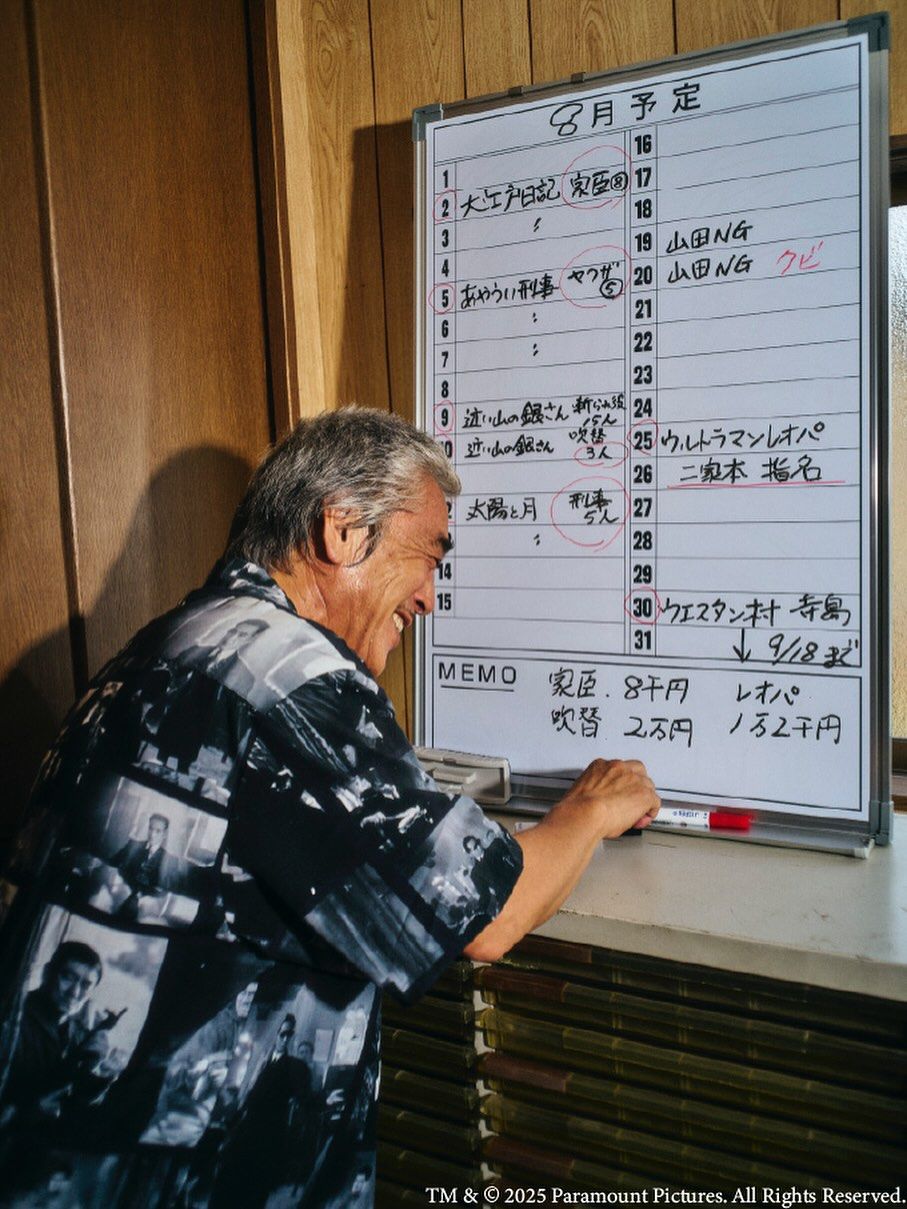 8月予定
1
2 大江戸日記 家臣⑧
3 〃
4
5 あやうい刑事 ヤクザ⑤
6 〃
7 〃
8
9 近い山の銀さん 斬られ役 15人
0 近い山の銀さん 吹替 3人
2 太陽と月 刑事 5人
〃
14
15
16
17
18
19 山田NG
20 山田NG クビ
21
22
23
24
25 ウルトラマンレオパ
26 二家本 指名
27
28
29
30 ウエスタン村 寺島
31 ↓ 9/18まで
MEMO
家臣. 8千円 レオパ.
吹替. 2万円 1万2千円
TM & © 2025 Paramount Pictures. All Rights Reserved.